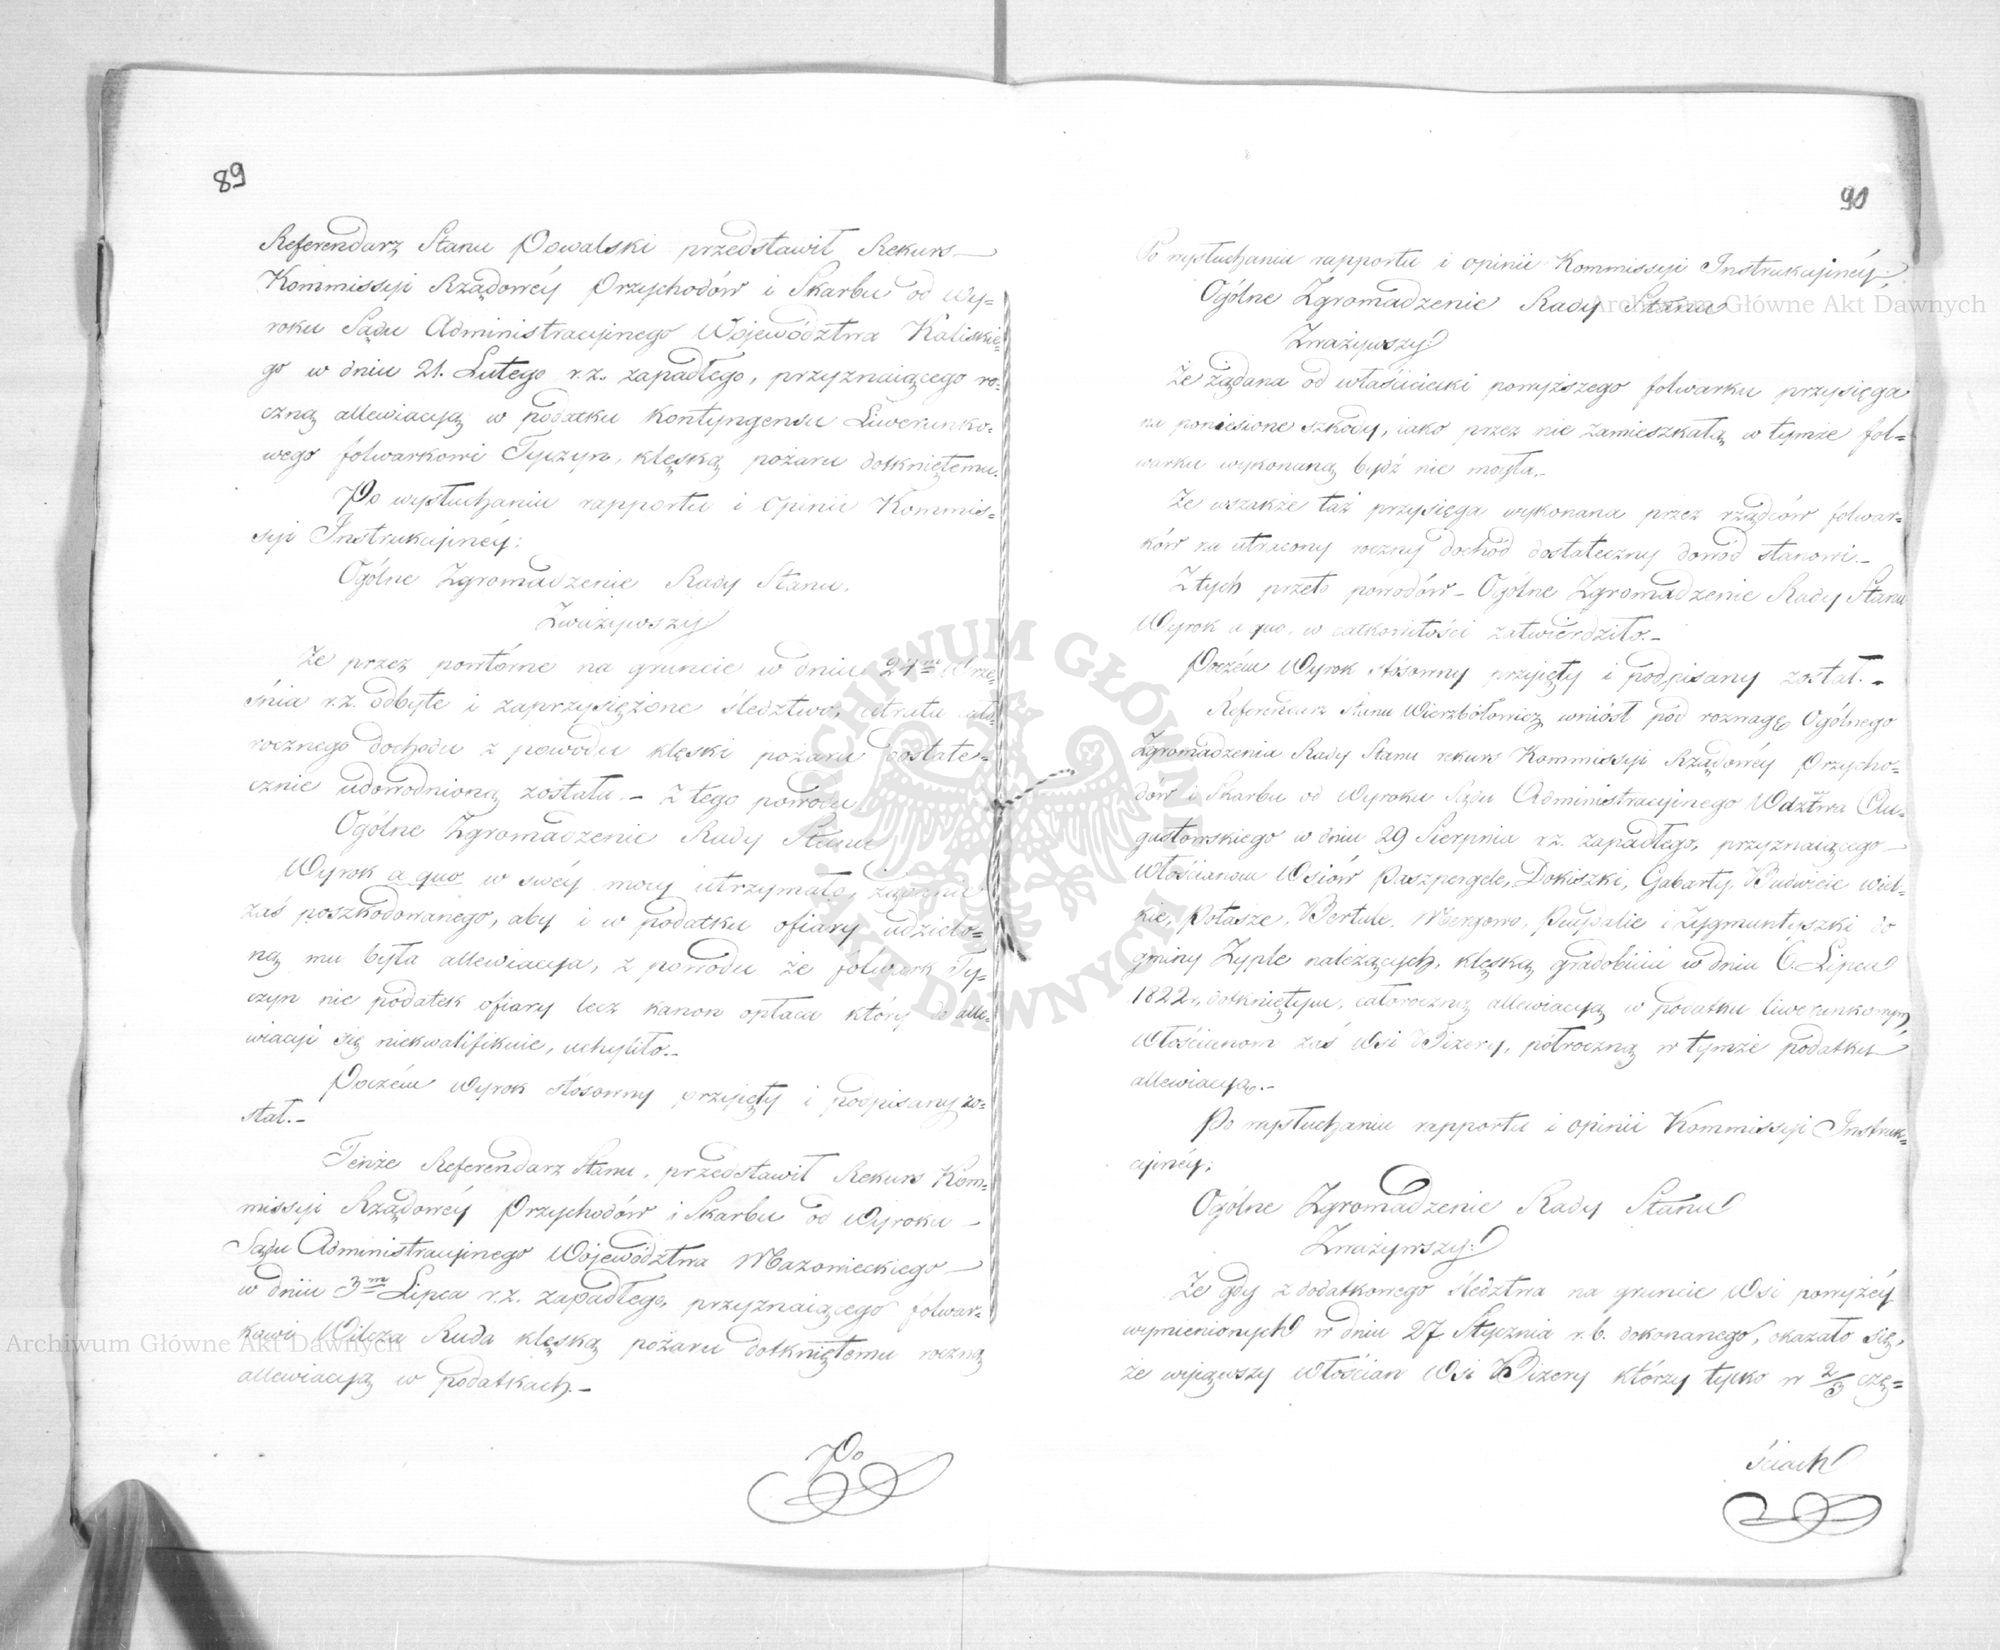 89
Referendarz Stanu Powalski przedstawił Rekurs
Kommissyi Rządowéy Przychodów i Skarbu od Wy-
roku Sądu Administracyinego Województwa Kaliskie-
go w dniu 21. Lutego r. z. zapadłego, przyznaiącego ro-
czną allewiacyą w podatku kontyngensu Liwerunko-
wego folwarkowi Tyczyn, klęską pożaru dotkniętemu.
Po wysłuchaniu rapportu i opinii Kommis-
syi Instrukcyinéy:
Ogólne Zgromadzenie Rady Stanu.
Zważywszy
Że przez powtórne na gruncie w dniu 24m Wrze-
śnia r. z. odbyte i zaprzysiężone śledztwo, utrata cało-
rocznego dochodu z powodu klęski pożaru dostate-
cznie udowodnioną została. - Z tego powodu
Ogólne Zgromadzenie Rady Stanu
Wyrok a quo w swéy mocy utrzymało, żądanie
zaś poszkodowanego, aby i w podatku ofiary udzielo-
ną mu była allewiacya, z powodu że folwark Ty-
czyn nie podatek ofiary lecz kanon opłaca który do alle-
wiacyi się niekwalifikuie, uchyliło.-
Poczém Wyrok stósowny przyięty i podpisany zo-
stał.-
Tenże Referendarz Stanu, przedstawił Rekurs Kom-
missyi Rządowéy Przychodów i Skarbu od Wyroku
Sądu Administracyinego Województwa Mazowieckiego
w dniu 3m Lipca r. z. zapadłego, przyznaiącego folwar-
kowi Wilcza Ruda klęską pożaru dotkniętemu roczną
allewiacyą w podatkach.-
Po
90
Po wysłuchaniu rapportu i opinii Kommissyi Instrukcyinéy;
Ogólne Zgromadzenie Rady Stanu
Zważywszy:
Że żądana od właścicielki powyższego folwarku przysięga
na poniesione szkody, iako przez nie zamieszkałą w tymże fol-
warku wykonaną bydź nie mogła.-
Że wszakże taż przysięga wykonana przez rządców folwar-
ków na utracony roczny dochód dostateczny dowód stanowi.-
Z tych przeto powodów - Ogólne Zgromadzenie Rady Stanu
Wyrok a quo, w całkowitości zatwierdziło.-
Poczém Wyrok stósowny przyięty i podpisany został.-
Referendarz Stanu Wierzbółowicz wniósł pod rozwagę Ogólnego
Zgromadzenia Rady Stanu rekurs Kommissyi Rządowéy Przycho-
dów i Skarbu od Wyroku Sądu Administracyinego Wdztwa Au-
gustowskiego w dniu 29 Sierpnia r. z. zapadłego, przyznaiącego
Włościanom Wsiów Paszpergele, Dokiszki, Gabarty, Budwiecie wiel-
kie, Potasze, Bertule, Mergowo, Puydalie i Zygmuntyszki do
gminy Zyple należących, klęską gradobicia w dniu 6. Lipca
1822 r. dotkniętym, całoroczną allewiacyą w podatku liwerunkowym,
Włościanom zaś Wsi Bizery, półroczną w tymże podatku
allewiacyą.-
Po wysłuchaniu rapportu i opinii Kommissyi Instruk-
cyinéy;
Ogólne Zgromadzenie Rady Stanu
Zważywszy:
Że gdy z dodatkowego śledztwa na gruncie Wsi powyżéy
wymienionych w dniu 27 Stycznia r. b. dokonanego, okazało się,
że wyiąwszy Włościan Wsi Bizery którzy tylko w 2/3 czę-
ściach
Archiwum Główne Akt Dawnych
Archiwum Główne Akt Dawnych
ARCHIWUM GŁÓWNE AKT DAWNYCH